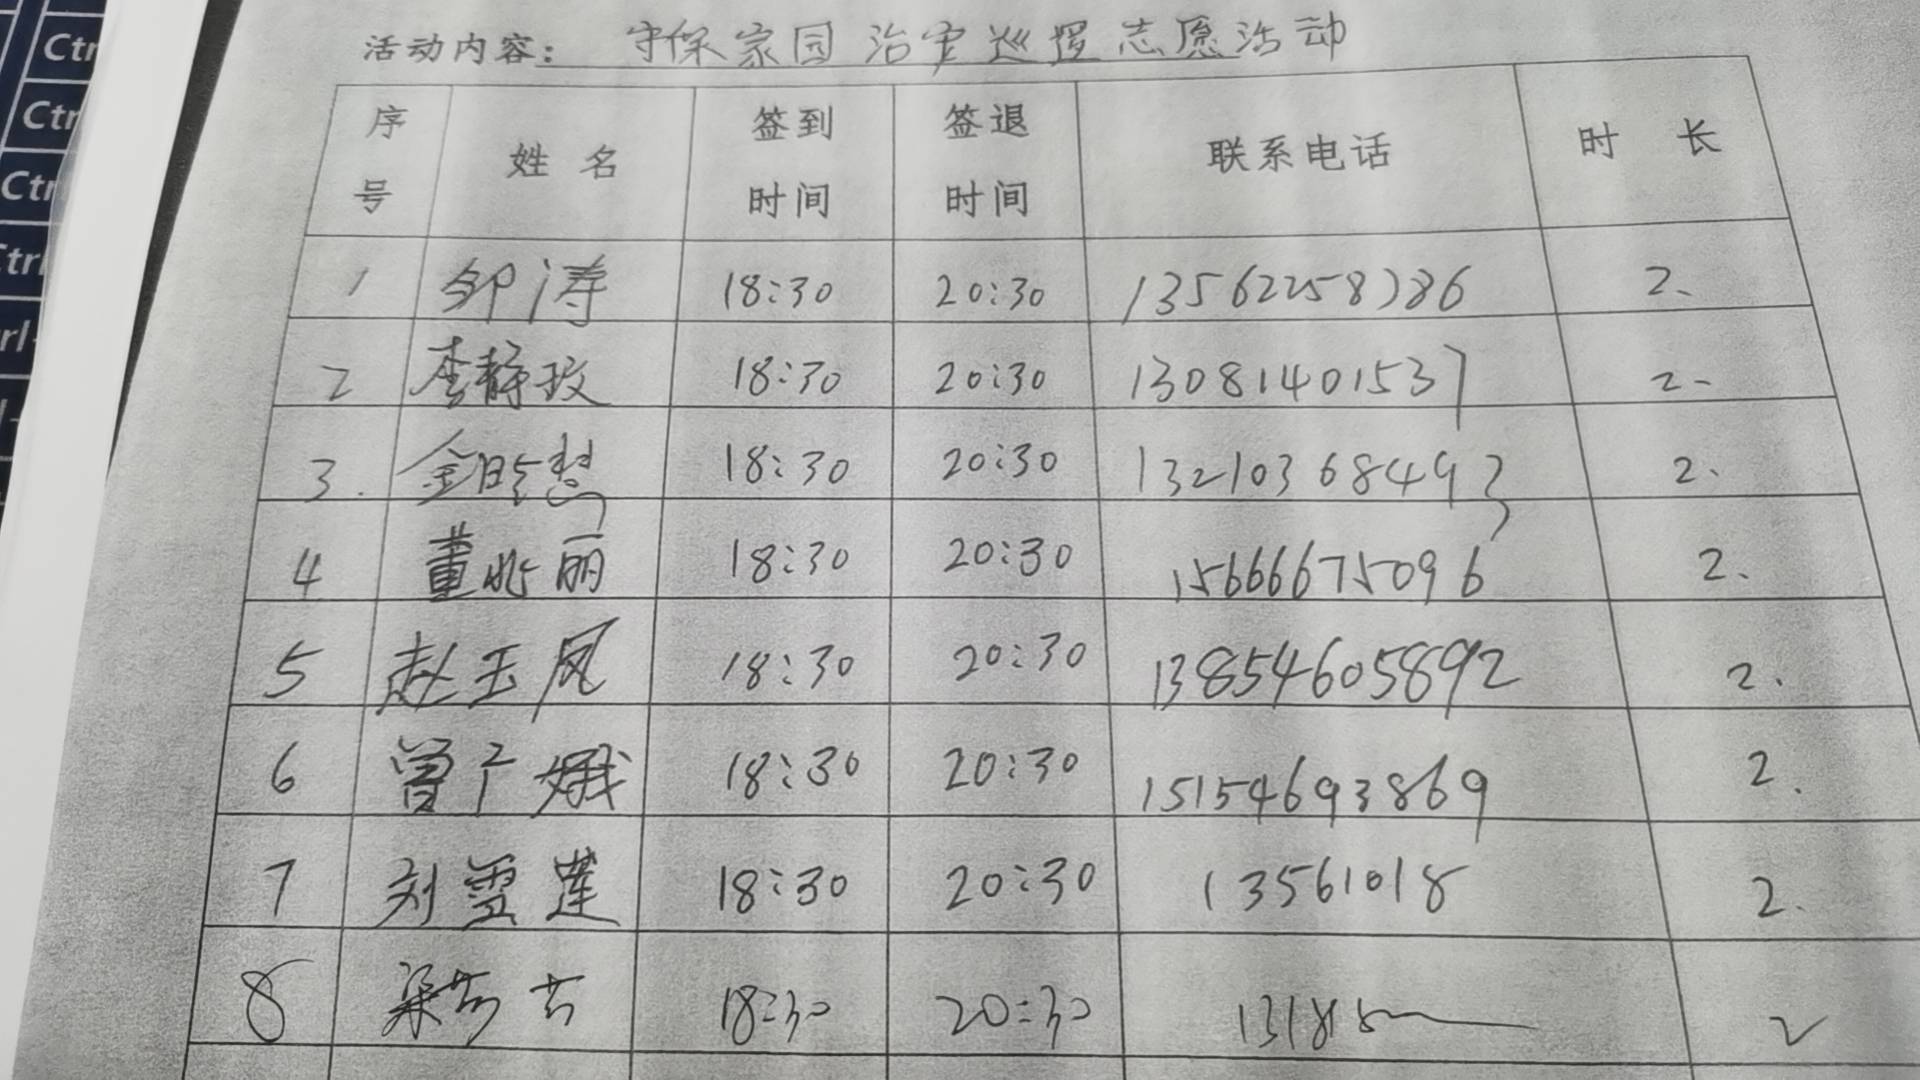 Ctr
Ctr
Ctr
Ctrl
活动内容：守保家园治安巡逻志愿活动
序号 姓名 签到时间 签退时间 联系电话 时长
1 邹涛 18:30 20:30 13562258786 2.
2 李静玫 18:30 20:30 13081401537 2-
3. 金昤慧 18:30 20:30 13210368493 2.
4 董兆丽 18:30 20:30 15666675096 2.
5 赵玉凤 18:30 20:30 13854605892 2.
6 曾广娥 18:30 20:30 15154693869 2.
7 刘雪莲 18:30 20:30 13561018 2.
8 梁 18:30 20:30 13181 2